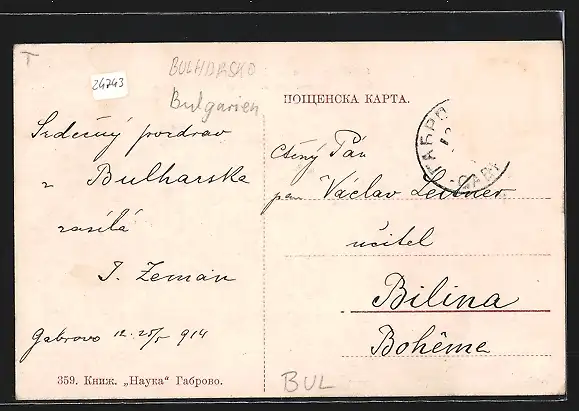 T
24743
BULHARSKO
Bulgarien
ПОЩЕНСКА КАРТА.
ГАБРО
GABR
Srdečný pozdrav
z Bulharska
zasílá
J. Zeman
Gabrovo 12. 25/5 914
Ctěný Pán
pan Václav Leitner
učitel
Bilina
Bohême
359. Книж. „Наука“ Габрово.
BUL